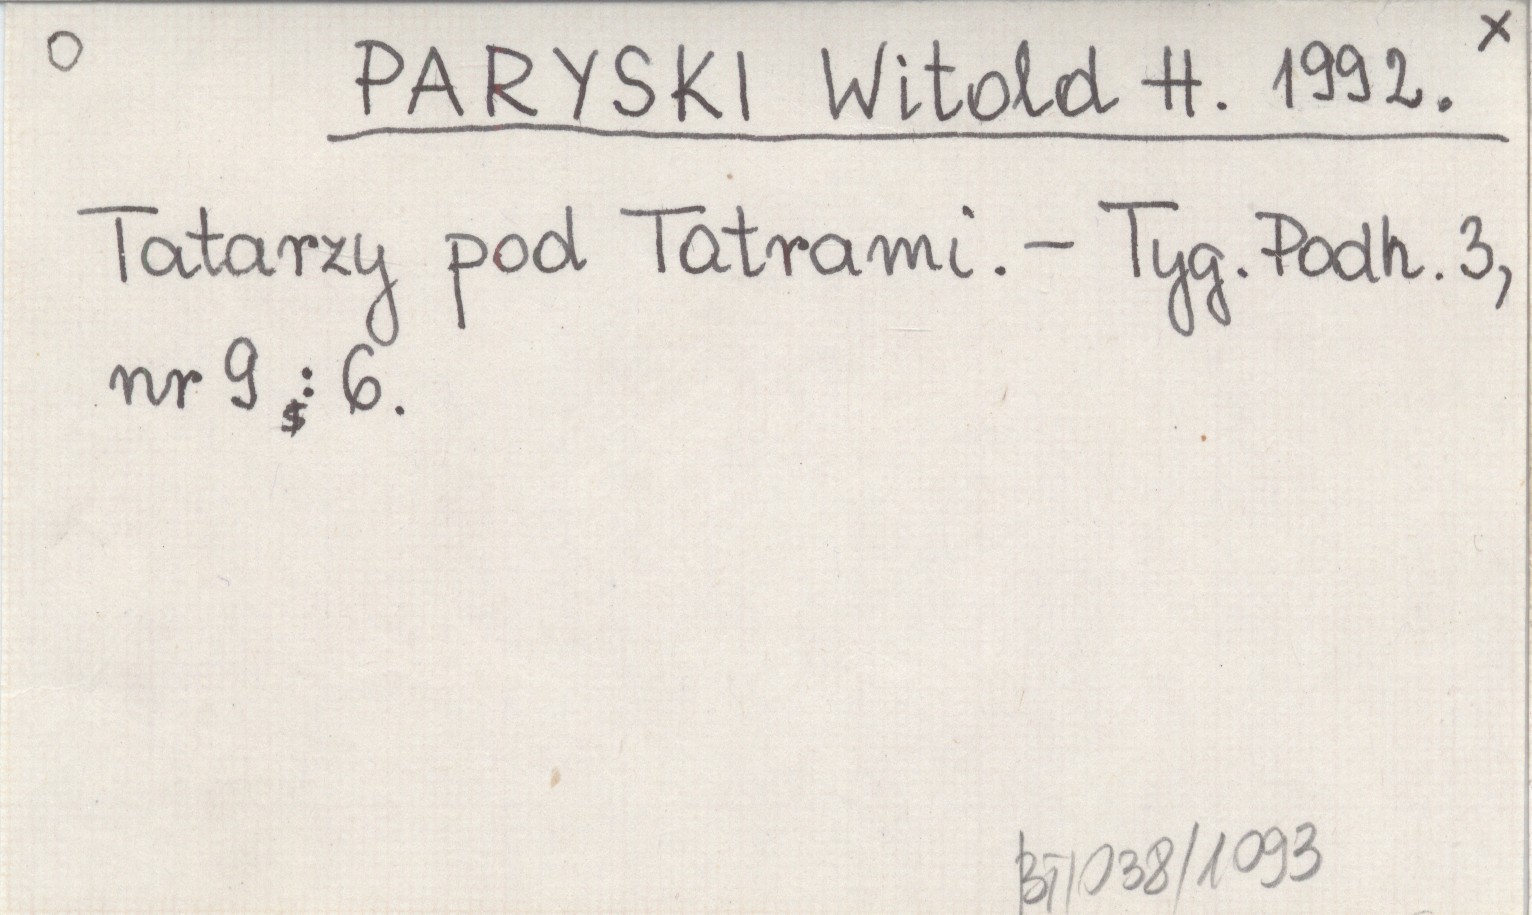 O PARYSKI Witold H. 1992. x
Tatarzy pod Tatrami. – Tyg. Podh. 3,
nr 9 : 6.
BT/038/1093